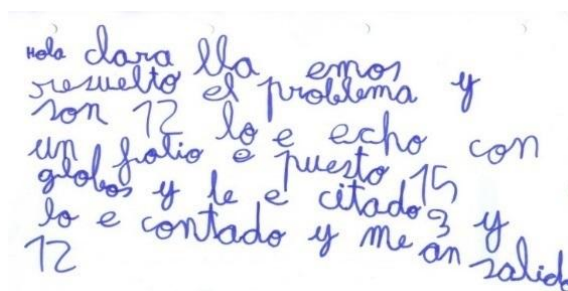 Hola clara lla emos
resuelto el problema y
son 12 lo e echo con
un folio e puesto 15
globos y le e citado 3 y
lo e contado y me an salido
12